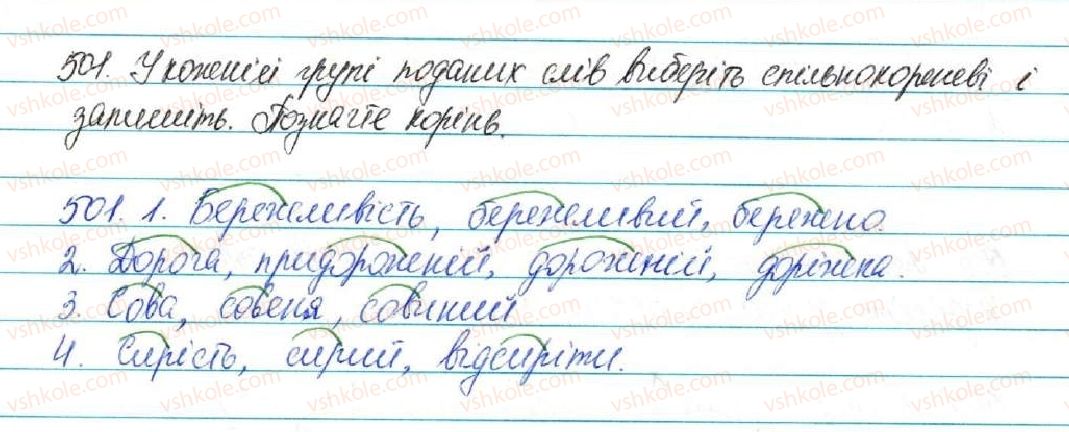 501. У кожній групі поданих слів виберіть спільнокореневі і
запишіть. Позначте корінь.
501. 1. Бережливість, бережливий, бережно.
2. Дорога, придорожній, дорожній, доріжка.
3. Сова, совеня, совиний
4. Сирість, сирий, відсиріти.